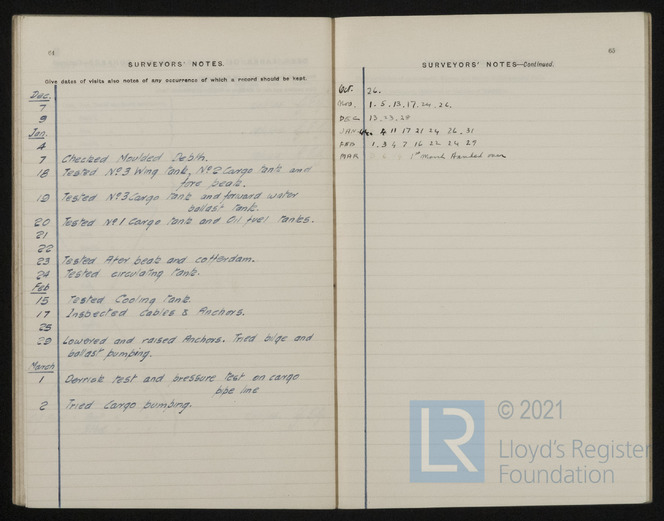 64
SURVEYORS' NOTES.
Give dates of visits also notes of any occurrence of which a record should be kept.
Dec.
7
9
Jan.
4
7 Checked Moulded Depth.
18 Tested Nº3 Wing Tank, Nº2 Cargo Tank and
fore peak.
19 Tested Nº3 Cargo Tank and forward water
ballast tank.
20 Tested Nº1 Cargo Tank and Oil fuel Tanks.
21
22
23 Tested After peak and cofferdam.
24 Tested circulating tank.
Feb
15 Tested Cooling Tank.
17 Inspected Cables & Anchors.
25
29 Lowered and raised Anchors. Tried bilge and
ballast pumping.
March
1 Derrick test and pressure test on cargo
pipe line
2 Tried Cargo pumping.
65
SURVEYORS' NOTES—Continued.
Oct. 26.
Nov. 1. 5. 13. 17. 24. 26.
DEC 13. 23. 28
JAN 4 11 17 21 24 26. 31
FEB 1. 3 4 7 16 22 24 29
MAR 1st March Handed over
© 2021
LR
Lloyd's Register
Foundation